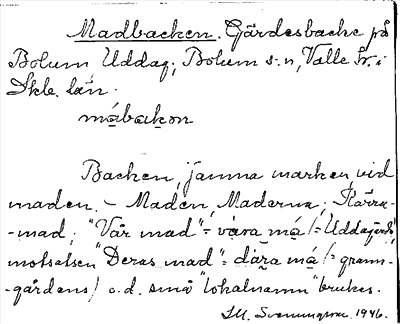 Madbacken. Gärdesbacke på
Bolum Uddag; Bolum s:n, Valle hr. i
Skbg. län.
måbakon
Backen, jämna marken vid
maden. – Maden, Maderna; Kärra-
-mad; "Vår mad" = våra må /= Uddagårds/
motsatsen "Deras mad" = dära må /= grann-
-gårdens/ o.d. små "lokalnamn" brukas.
1946.